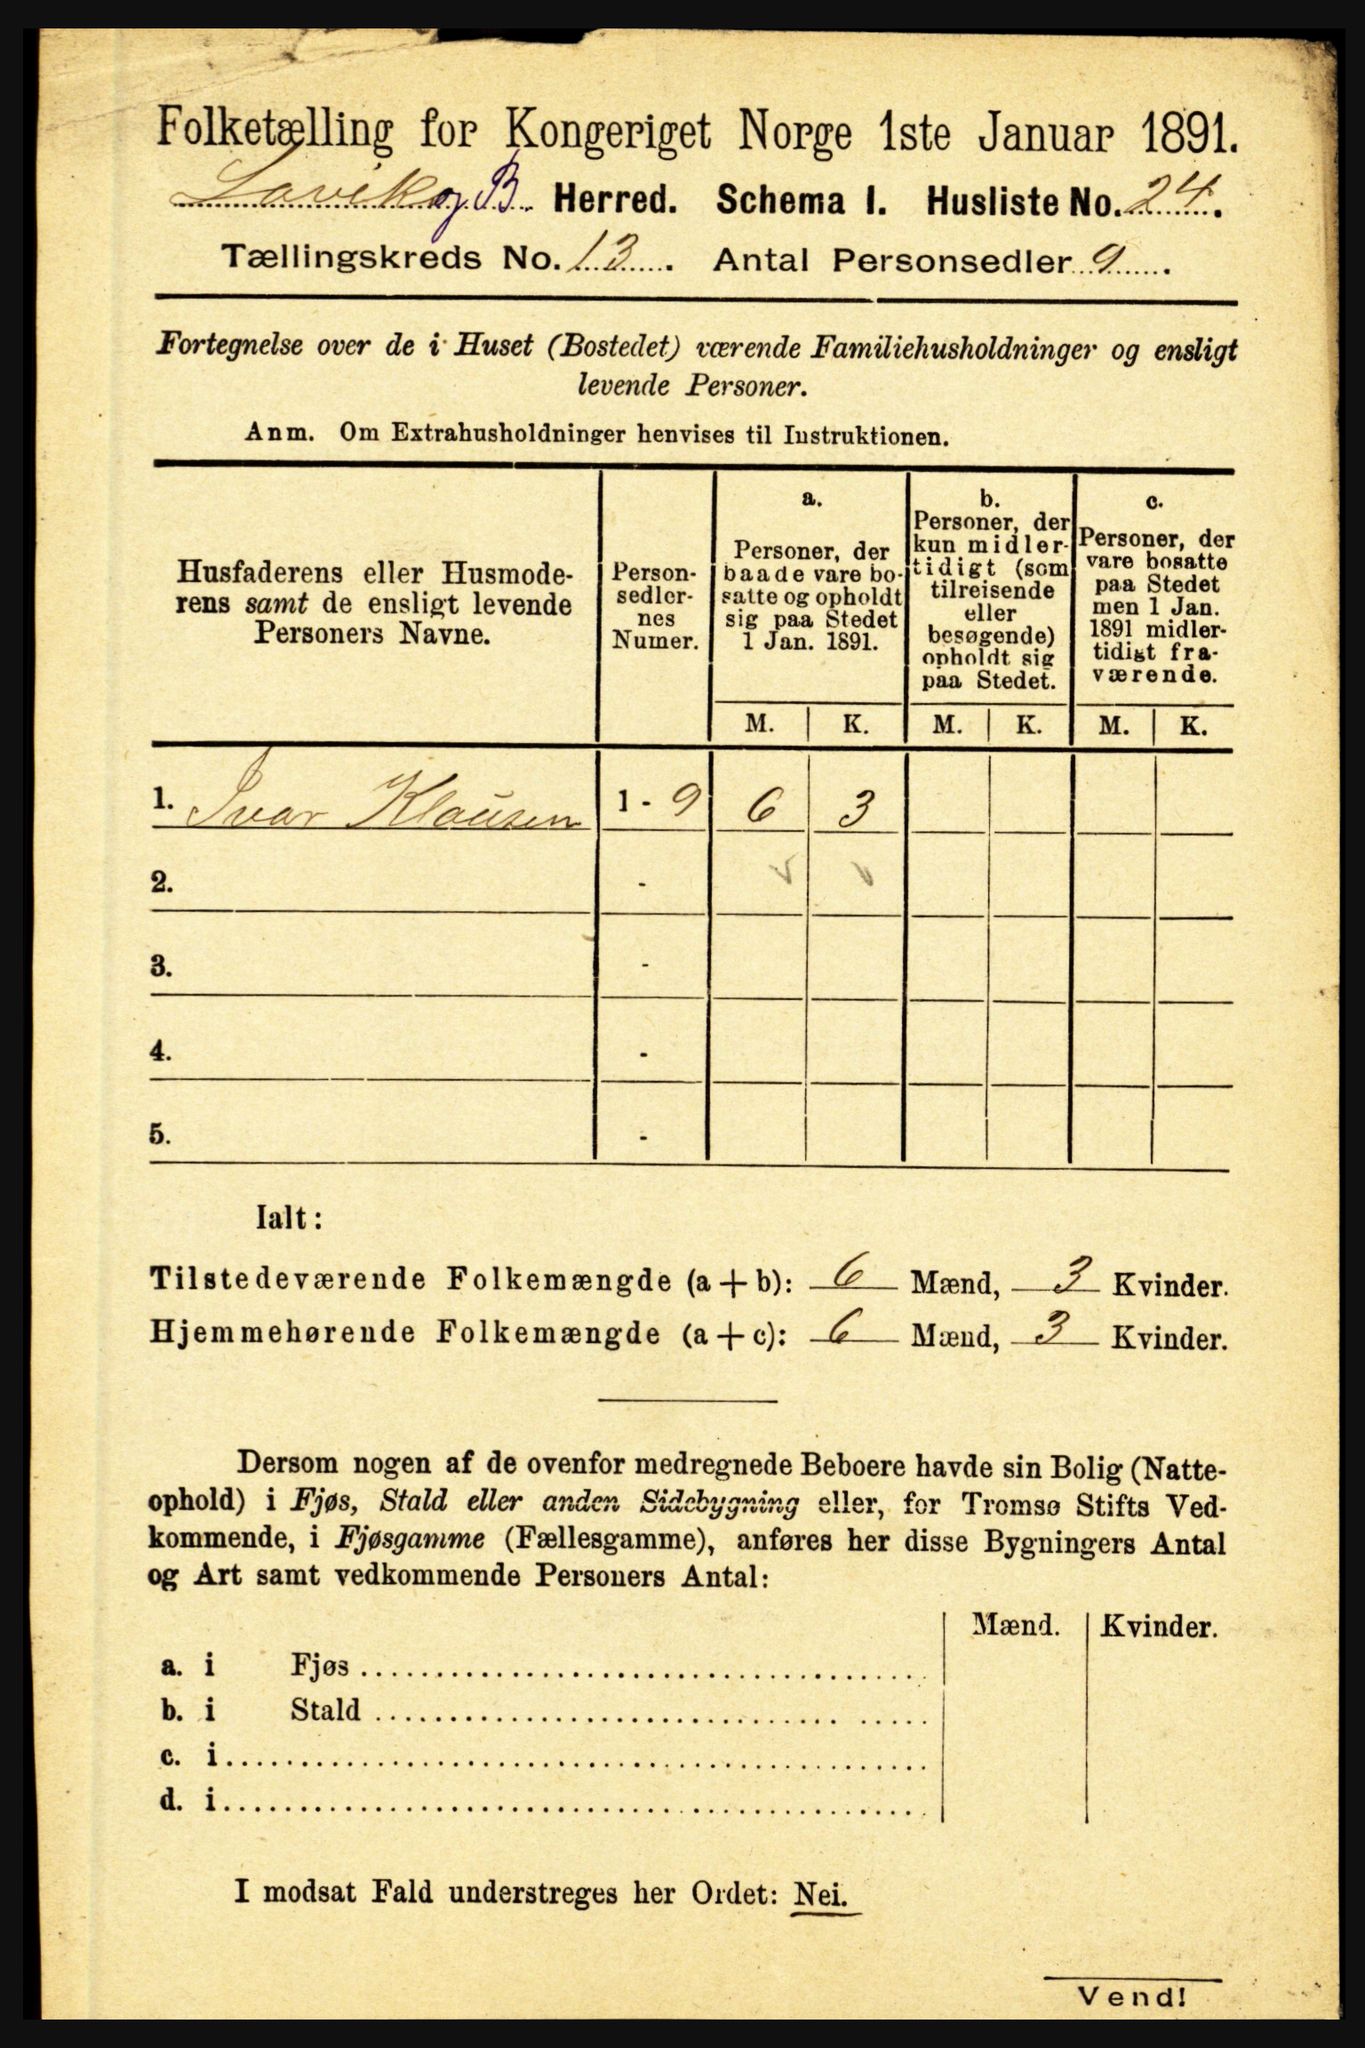 Folketælling for Kongeriget Norge 1ste Januar 1891.
Lavik og B. Herred. Schema I. Husliste No. 24.
Tællingskreds No. 13. Antal Personsedler 9.
Fortegnelse over de i Huset (Bostedet) værende Familiehusholdninger og ensligt
levende Personer.
Anm. Om Extrahusholdninger henvises til Instruktionen.
Husfaderens eller Husmode-
rens samt de ensligt levende
Personers Navne.
Person-
sedler-
nes
Numer.
a.
Personer, der
baade vare bo-
satte og opholdt
sig paa Stedet
1 Jan. 1891.
b.
Personer, der
kun midler-
tidigt (som
tilreisende
eller
besøgende)
opholdt sig
paa Stedet.
c.
Personer, der
vare bosatte
paa Stedet
men 1 Jan.
1891 midler-
tidigt fra-
værende.
M. K. M. K. M. K.
1. Ivar Klausen 1 - 9 6 3
2. -
3. -
4. -
5. -
Ialt:
Tilstedeværende Folkemængde (a + b): 6 Mænd, 3 Kvinder.
Hjemmehørende Folkemængde (a + c): 6 Mænd, 3 Kvinder.
Dersom nogen af de ovenfor medregnede Beboere havde sin Bolig (Natte-
ophold) i Fjøs, Stald eller anden Sidebygning eller, for Tromsø Stifts Ved-
kommende, i Fjøsgamme (Fællesgamme), anføres her disse Bygningers Antal
og Art samt vedkommende Personers Antal:
Mænd. Kvinder.
a. i Fjøs
b. i Stald
c. i
d. i
I modsat Fald understreges her Ordet: Nei.
Vend!